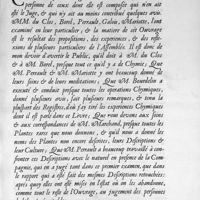 personne de ceux dont elle est composée qui n'en ait
esté le Juge, & qui n'y ait au moins contribué quelques avis.
MM. du Clos, Borel, Perrault, Galois, Mariotte, l'ont
examiné en leur particulier; & la matiere de cét Ouvrage
est le resultat des propositions, des experiences, & des refle-
xions de plusieurs particuliers de l'Assemblée. Il est de mon
devoir d'avertir le Public, qu'il doit à M. du Clos
& à M. Borel, presque tout ce qu'il y a de Chymie; Que
M. Perrault & M. Mariotte y ont beaucoup donné de
leurs soins & de leurs meditations; Que M. Bourdelin a
executé & conduit presque toutes les operations Chymiques,
donné plusieurs avis, fait plusieurs remarques, & tenu la
pluspart des Registres, d'où j'ay tiré les experiences Chymiques
dont il est parlé dans ce Livre; Que nous devons aux soins
& aux correspondances de M. Marchand, presque toutes les
Plantes rares que nous donnons, & qu'il nous a donné le
noms des Plantes non encor décrites, leurs Descriptions &
leur Culture; Que M. Perrault a beaucoup travaillé à con-
ferer ces Descriptions avec le naturel en presence de la Com-
pagnie, qui en a jugé tant dans ce premier examen, que dans
le rapport qui a esté fait des mesmes Descriptions retouchées:
aprés quoy elles ont esté mises en l'estat où on les abandonne,
comme tout le reste de l'Ouvrage, au jugement des personnes